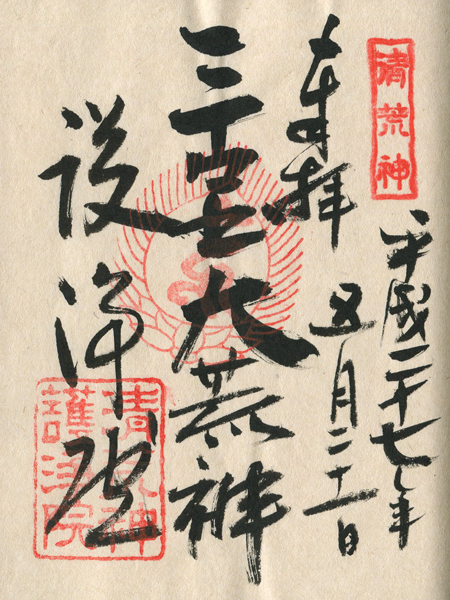 清荒神
平成二十七年
五月二十一日
奉拝
三宝大荒神
護浄院
清荒神
護浄院